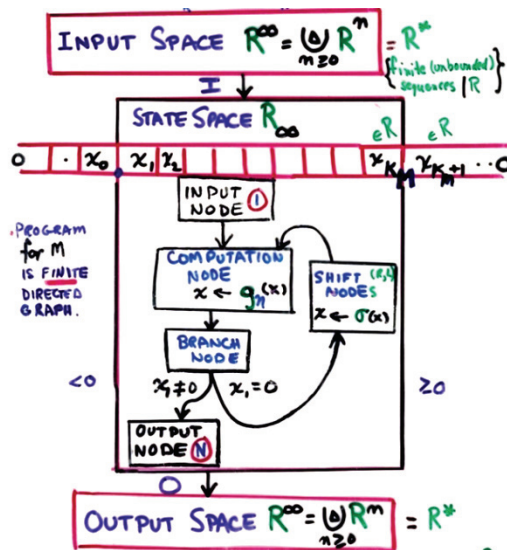 INPUT SPACE R^∞ = ⨃ R^n = R*
n≥0
{finite (unbounded) sequences / R}
I
STATE SPACE R_∞
∈R ∈R
0 . x₀ x₁ x₂ x_{K_M} x_{K_M+1} ..0
INPUT
NODE 1
PROGRAM
for M
IS FINITE
DIRECTED
GRAPH.
COMPUTATION
NODE
x ← g_n(x)
SHIFT (R,L)
NODES
x ← σ(x)
BRANCH
NODE
<0 x₁≠0 x₁=0 ≥0
OUTPUT
NODE N
O
OUTPUT SPACE R^∞ = ⨃ R^n = R*
n≥0